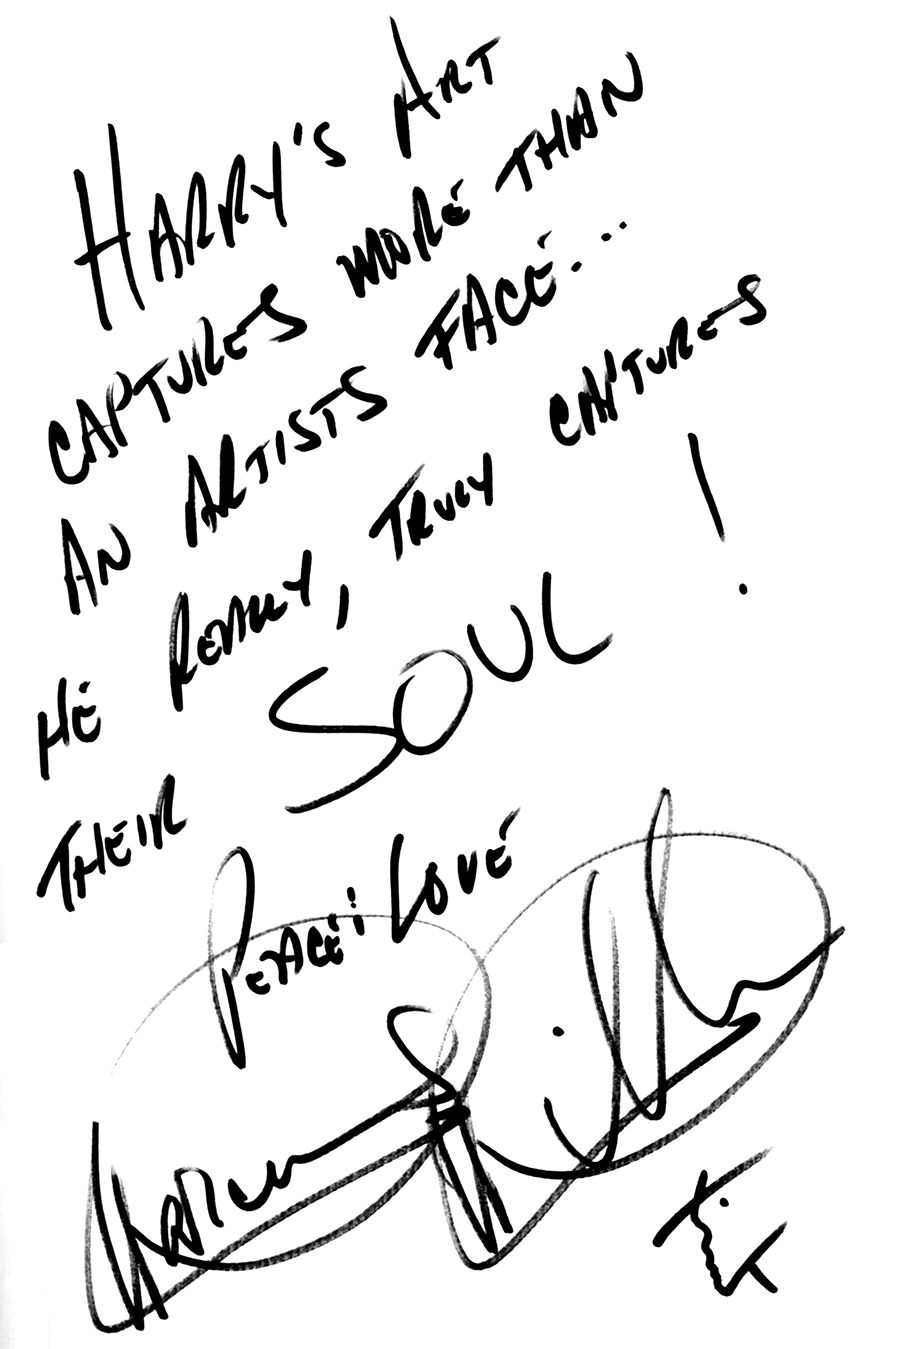 HARRY'S ART
CAPTURES MORE THAN
AN ARTISTS FACE...
HE REALLY, TRULY CAPTURES
THEIR SOUL!
PEACE: LOVE
Marcus Miller